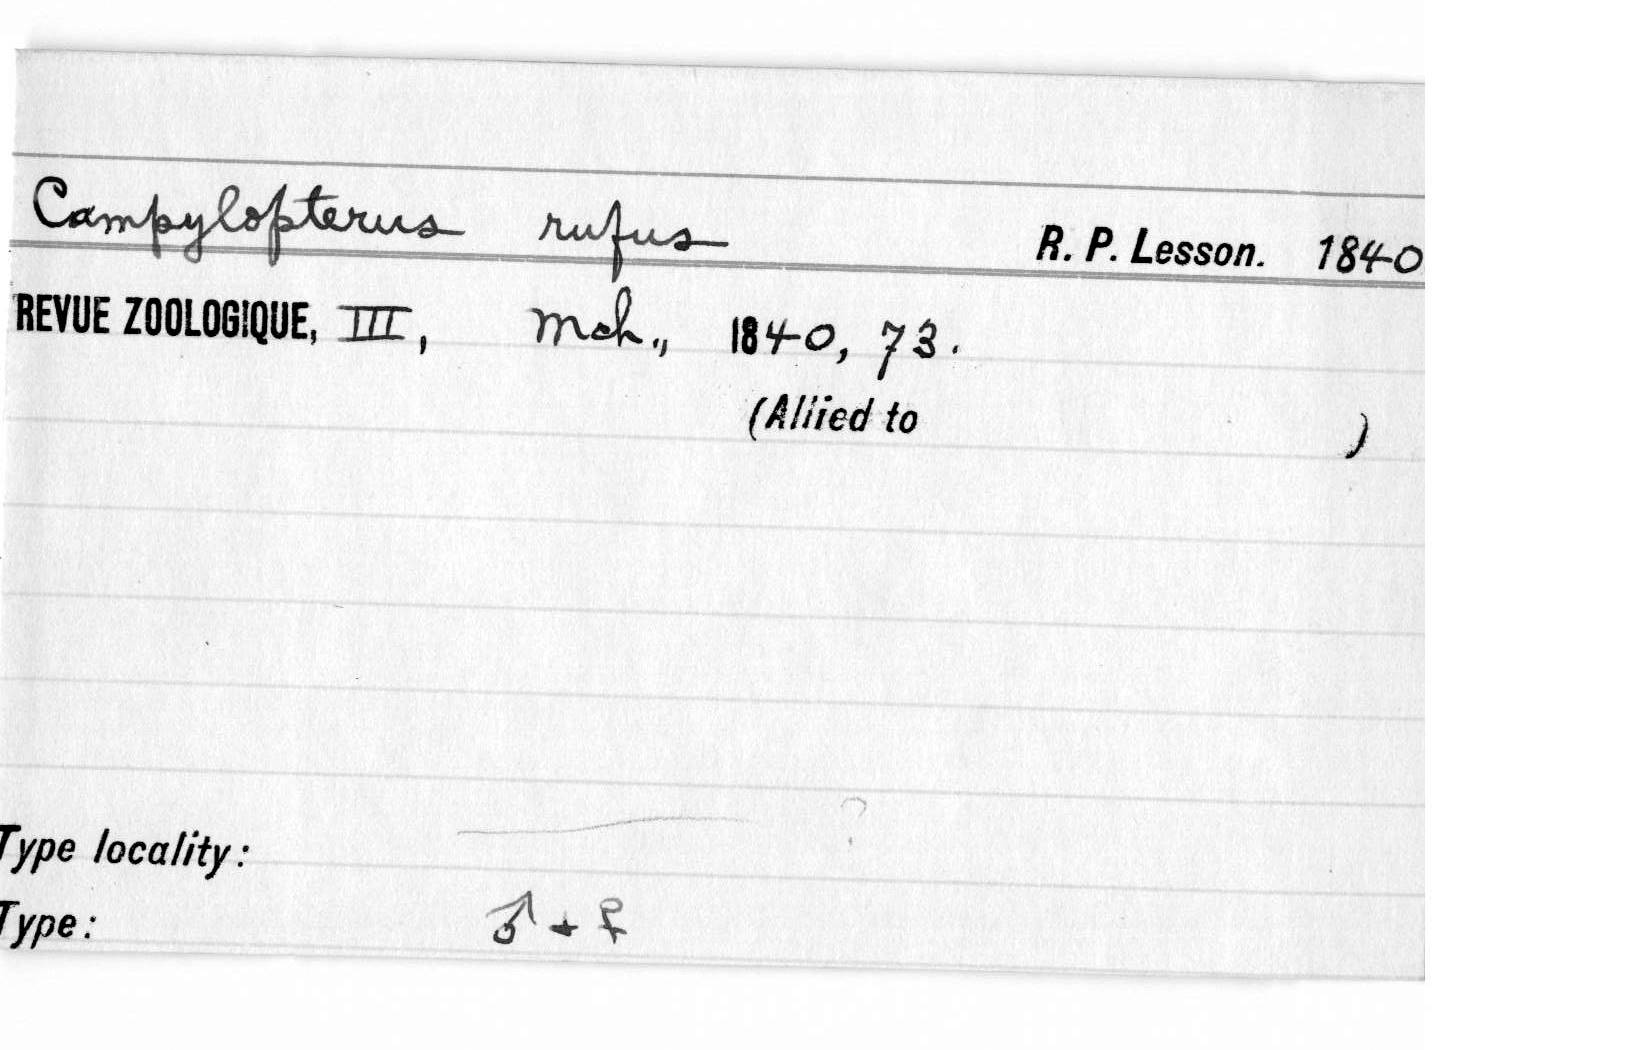 Campylopterus rufus R. P. Lesson. 1840
REVUE ZOOLOGIQUE, III, Mch., 1840, 73.
(Allied to )
Type locality: ?
Type: ♂ + ♀